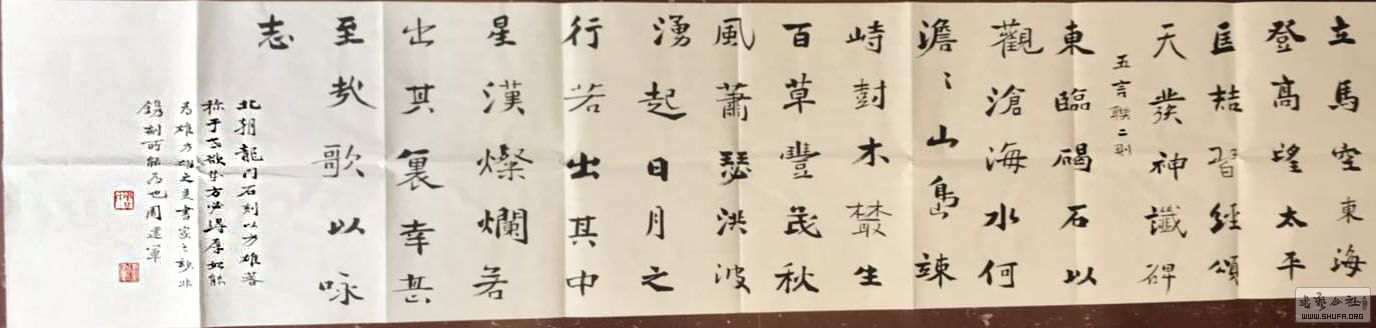 立馬空東海
登高望太平
匡喆習經頌
天發神讖碑
五言聯二則
東臨碣石以
觀滄海水何
澹〻山島竦
峙尌木叢生
百草豐茂秋
風蕭瑟洪波
湧起日月之
行若出其中
星漢燦爛若
出其裏幸甚
至哉歌以咏
志
北朝龍門石刻以方雄著
称于世欲方必得厚如能
为雄書家之秘非
鐫刻所能為也周建軍
WWW.SHUFA.ORG